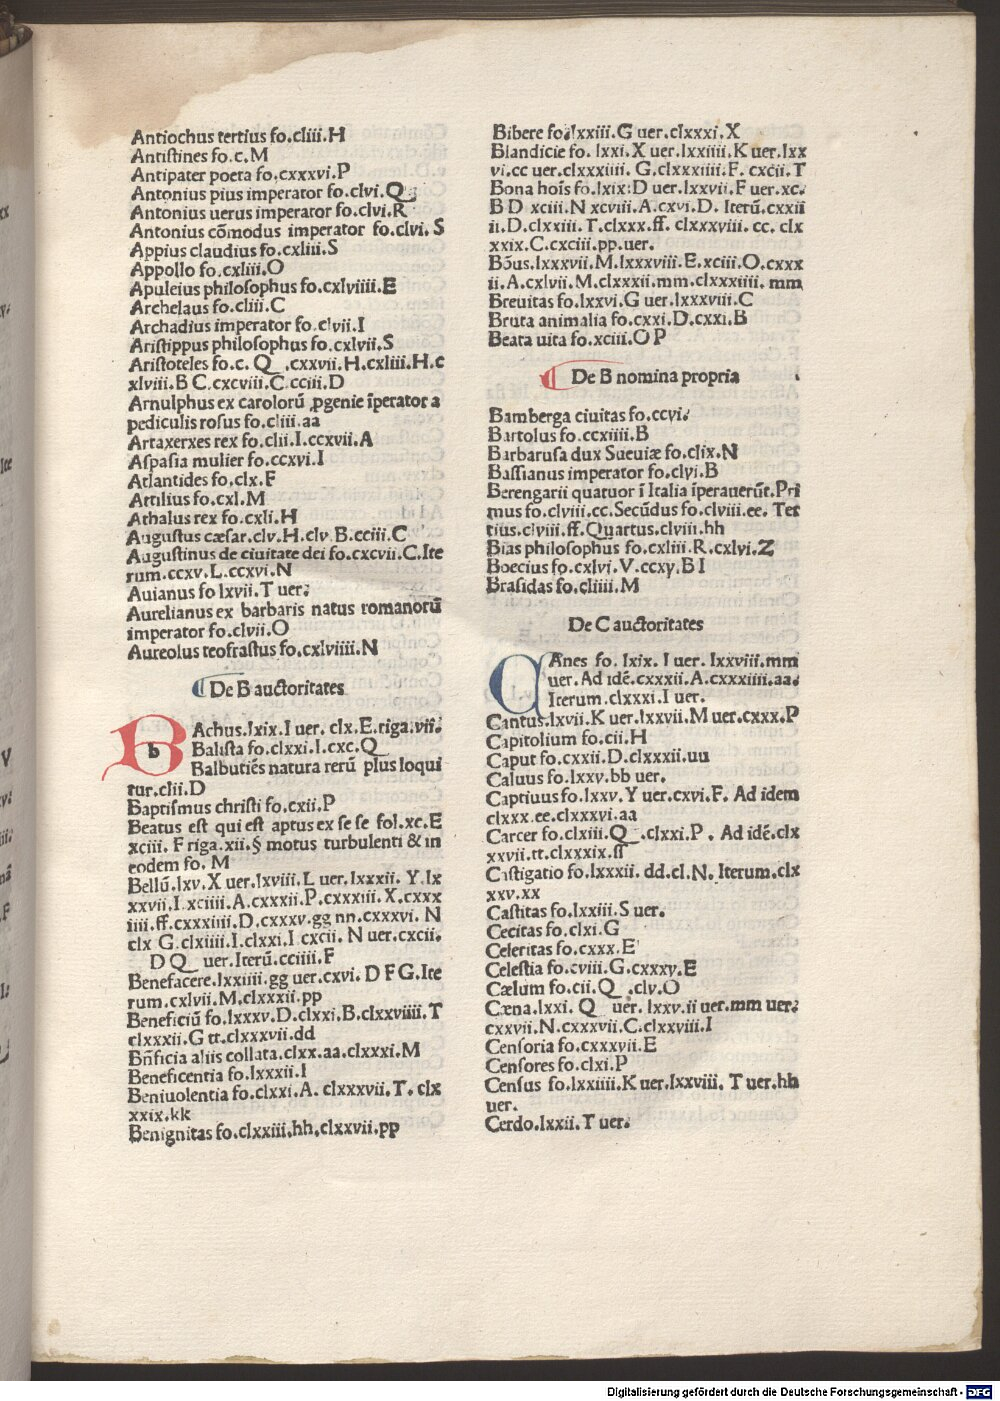 Antiochus tertius fo.cliii.H
Antistines fo.c.M
Antipater poeta fo.cxxxvi.P
Antonius pius imperator fo.clvi.Q
Antonius uerus imperator fo.clvi.R
Antonius cōmodus imperator fo.clvi.S
Appius claudius fo.cxliii.S
Appollo fo.cxliii.O
Apuleius philosophus fo.cxlviiii.E
Archelaus fo.cliii.C
Archadius imperator fo.clvii.I
Aristippus philosophus fo.cxlvii.S
Aristoteles fo.c.Q .cxxvii.H.cxliii.H.c
xlviii.B C.cxcviii.C.cciii.D
Arnulphus ex carolorū ꝓgenie īperator a
pediculis rosus fo.cliii.aa
Artaxerxes rex fo.clii.I.ccxvii.A
Aspasia mulier fo.ccxvi.I
Atlantides fo.clx.F
Attilius fo.cxl.M
Athalus rex fo.cxli.H
Augustus cæsar.clv.H.clv B.cciii.C
Augustinus de ciuitate dei fo.cxcvii.C.Ite
rum.ccxv.L.ccxvi.N
Auianus fo lxvii.T uer.
Aurelianus ex barbaris natus romanorū
imperator fo.clvii.O
Aureolus teofrastus fo.cxlviiii.N
De B auctoritates
BAchus.lxix.I uer. clx.E.riga.vii.
Balista fo.clxxi.I.cxc.Q
Balbutiēs natura rerū plus loqui
tur.clii.D
Baptismus christi fo.cxii.P
Beatus est qui est aptus ex se se fol.xc.E
xciii. F riga.xii.§ motus turbulenti & in
eodem fo. M
Bellū.lxv.X uer.lxviii.L uer.lxxxii. Y.lx
xxvii.I.xciiii.A.cxxxii.P.cxxxiii.X.cxxx
iiii.ff.cxxxiiii.D.cxxxv.gg nn.cxxxvi. N
clx G.clxiiii.I.clxxi.I cxcii. N uer.cxcii.
D Q uer.Iterū.cciiii.F
Benefacere.lxxiiii.gg uer.cxvi. D F G.Ite
rum.cxlvii.M.clxxxii.pp
Beneficiū fo.lxxxv.D.clxxi.B.clxxviiii.T
clxxxii.G tt.clxxxvii.dd
Bn̄ficia aliis collata.clxx.aa.clxxxi.M
Beneficentia fo.lxxxii.I
Beniuolentia fo.clxxi.A. clxxxvii.T. clx
xxix.kk
Benignitas fo.clxxiii.hh.clxxvii.pp
Bibere fo.lxxiii.G uer.clxxxi.X
Blandicie fo. lxxi.X uer.lxxiiii.K uer.lxx
vi.cc uer.clxxxiiii. G.clxxxiiii.F. cxcii.T
Bona hoīs fo.lxix.D uer.lxxvii.F uer.xc.
B D xciii.N xcviii.A.cxvi.D. Iterū.cxxii
ii.D.clxxiii.T.clxxx.ff.clxxxviii. cc. clx
xxix.C.cxciii.pp.uer.
Bōus.lxxxvii.M.lxxxviii.E.xciii.O.cxxx
ii.A.cxlvii.M.clxxxii.mm.clxxxiiii. mm
Breuitas fo.lxxvi.G uer.lxxxviii.C
Bruta animalia fo.cxxi.D.cxxi.B
Beata uita fo.xciii.O P
De B nomina propria
Bamberga ciuitas fo.ccvi.
Bartolus fo.ccxiiii.B
Barbarusa dux Sueuiæ fo.clix.N
Bassianus imperator fo.clvi.B
Berengarii quatuor ī Italia īperauerūt.Pri
mus fo.clviii.cc.Secūdus fo.clviii.ee. Ter
tius.clviii.ff.Quartus.clviii.hh
Bias philosophus fo.cxliii.R.cxlvi.Z
Boecius fo.cxlvi.V.ccxv.B I
Brasidas fo.cliiii.M
De C auctoritates
CAnes fo. lxix. I uer. lxxviii.mm
uer. Ad idē.cxxxii.A.cxxxiiii.aa.
Iterum.clxxxi.I uer.
Cantus.lxvii.K uer.lxxvii.M uer.cxxx.P
Capitolium fo.cii.H
Caput fo.cxxii.D.clxxxii.uu
Caluus fo.lxxv.bb uer.
Captiuus fo.lxxv.Y uer.cxvi.F. Ad idem
clxxx.ee.clxxxvi.aa
Carcer fo.clxiii.Q .clxxi.P. Ad idē.clx
xxvii.tt.clxxxix.ss
Castigatio fo.lxxxii. dd.cl.N. Iterum.clx
xxv.xx
Castitas fo.lxxiii.S uer.
Cecitas fo.clxi.G
Celeritas fo.cxxx.E
Celestia fo.cviii.G.cxxxv.E
Cælum fo.cii.Q .clv.O
Cæna.lxxi. Q uer. lxxv.ii uer.mm uer.
cxxvii.N.cxxxvii.C.clxxviii.I
Censoria fo.cxxxvii.E
Censores fo.clxi.P
Census fo.lxxiiii.K uer.lxxviii. T uer.hh
uer.
Cerdo.lxxii.T uer.
Digitalisierung gefördert durch die Deutsche Forschungsgemeinschaft - DFG